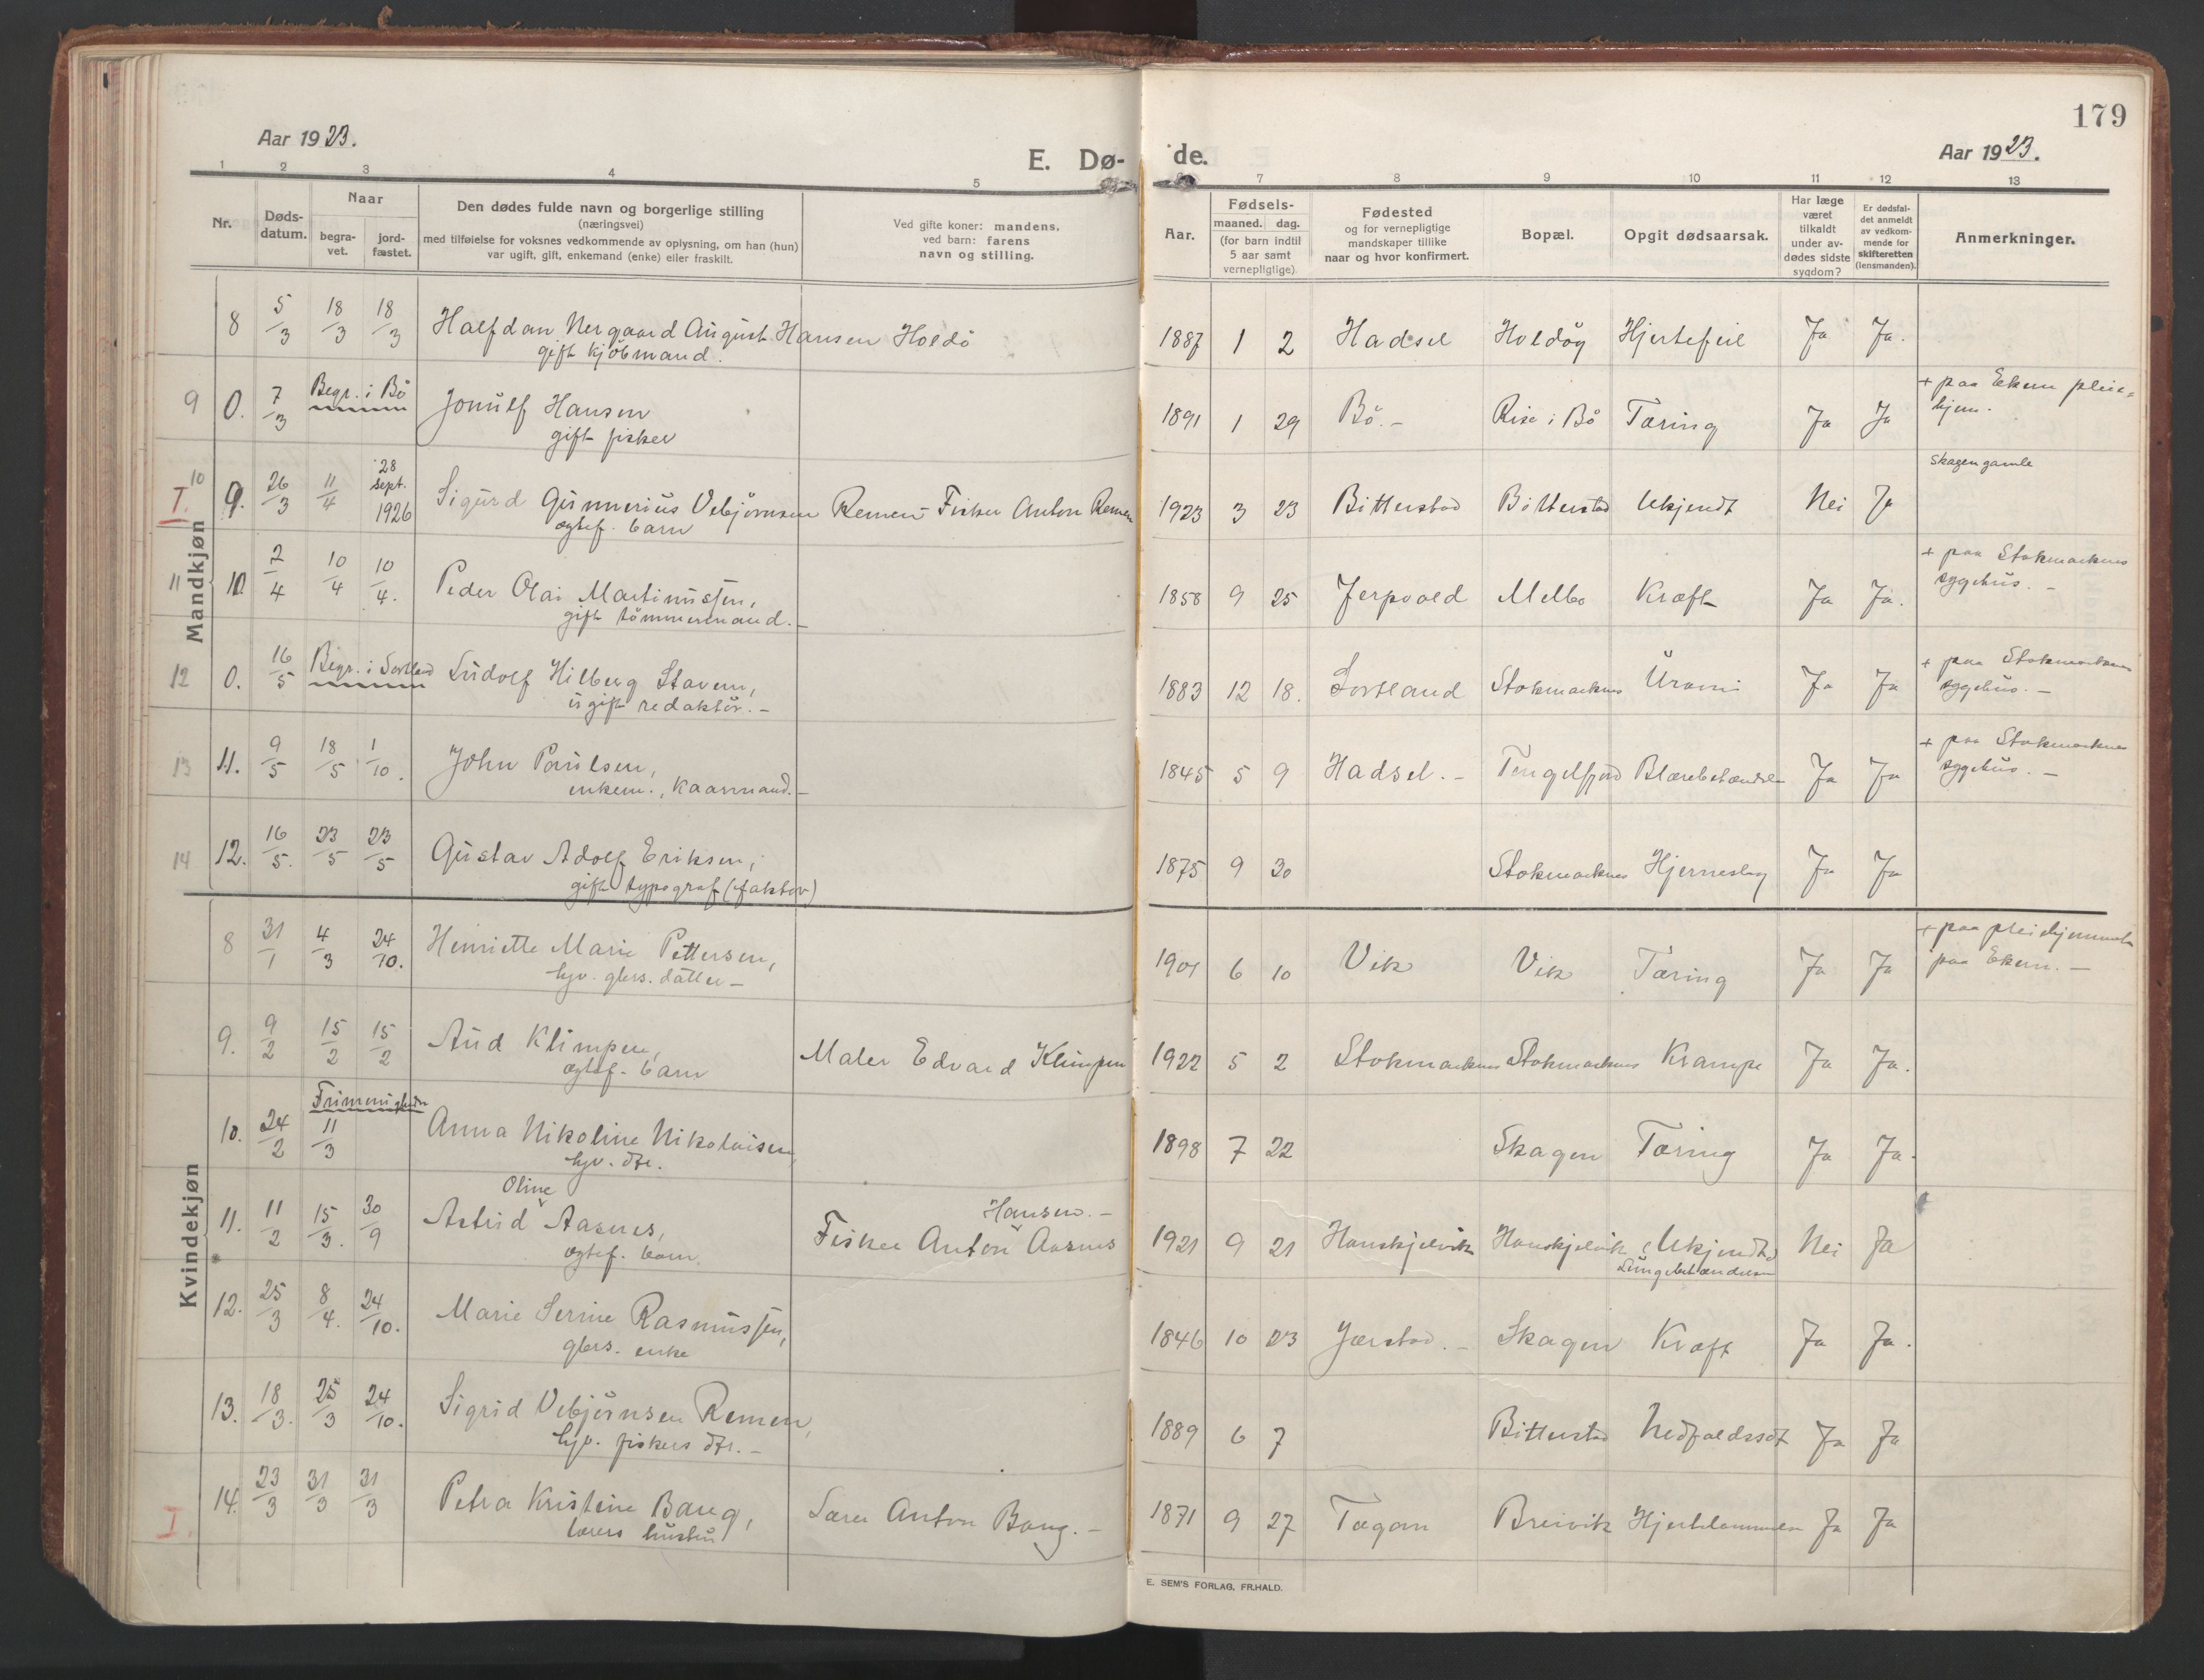 179
Aar 1923.
E. Dø-
de.
Aar 1923.
1 2 3 4 5 7 8 9 10 11 12 13
Nr.
Døds-
datum.
Naar
begra-
vet.
jord-
fæstet.
Den dødes fulde navn og borgerlige stilling
(næringsvei)
med tilføielse for voksnes vedkommende av oplysning, om han (hun)
var ugift, gift, enkemand (enke) eller fraskilt.
Ved gifte koner: mandens,
ved barn: farens
navn og stilling.
Aar.
Fødsels-
maaned. dag.
(for barn indtil
5 aar samt
vernepligtige).
Fødested
og for vernepligtige
mandskaper tillike
naar og hvor konfirmert.
Bopæl.
Opgit dødsaarsak.
Har læge
været
tilkaldt
under av-
dødes sidste
sygdom?
Er dødsfal-
det anmeldt
av vedkom-
mende for
skifteretten
(lensmanden).
Anmerkninger.
Mandkjøn
8 5/3 18/3 18/3 Halfdan Nergaard August Hansen Holdö 1887 1 2 Hadsel Holdöy Hjertefeil Ja Ja.
gift kjöbmand.
9 0. 7/3 Begr. i Bö Jonulf Hansen 1891 1 29 Bö.- Rise i Bö Tæring Ja Ja + paa Ekern pleie-
hjem.
gift fisker
I. 10 9. 26/3 11/4 28 sept. 1926 Sigurd Gunnerius Vebjörnsen Remen - Fisker Anton Remen 1923 3 23 Bitterstad Bitterstad Ukjendt Nei Ja Skagen gamle
ægtef. barn
11 10 2/4 10/4 10/4. Peder Olai Martinussen, 1858 9 25 Jerpvold Melbo Kræft Ja Ja. + paa Stokmarknes
sygehus. -
gift tömmermand. -
12 0. 16/5 Begr. i Sortland Ludolf Hilberg Stavem, 1883 12 18. Sortland Stokmarknes Uræmi Ja Ja + paa Stokmarknes
sygehus. -
ugift redaktör. -
13 11. 9/5 18/5 1/10. John Paulsen, 1845 5 9 Hadsel. - Tengelfjord Blærebetændelse Ja Ja + paa Stokmarknes
sygehus. -
enkem., kaarmand. -
14 12. 16/5. 23/5 23/5 Gustav Adolf Eriksen, 1875 9 30 Stokmarknes Hjerneslag Ja Ja
gift typograf (faktor)
Kvindekjøn
8 31/1 4/3 24/10. Henriette Marie Pettersen, 1901 6 10 Vik Vik Tæring Ja Ja + paa pleiehjemmet
paa Ekern. -
hjv. gbrs. datter -
9. 9/2 15/2 15/2 Aud Klimpen, Maler Edvard Klimpen 1922 5 2 Stokmarknes Stokmarknes Krampe Ja Ja.
ægtef. barn
Frimenigheden
10. 24/2 11/3 Anna Nikoline Nikolaisen, 1898 7 22 Skagen Tæring Ja Ja.
hjv. dtr.
Oline
Hansen. -
11. 11/2 15/3. 30/9 Astrid Aasnes, Fisker Anton Aasnes 1921 9 21 Hanskjelvik Hanskjelvik (Ukjendt) Nei Ja
ægtef. barn.
Lungebetændelse
12. 25/3 8/4. 24/10. Marie Serine Rasmussen, 1846 10 23 Jærstad. - Skagen Kræft Ja Ja.
gbrs. enke
13. 18/3. 25/3 24/10. Sigrid Vebjörnsen Remen, 1889 6 7 Bitterstad Nedfaldssot Ja Ja
hjv. fiskers dtr. -
I. 14. 23/3 31/3 31/3 Petra Kristine Bang, Lærer Anton Bang. - 1871 9 27 Tægan Breivik Hjertelammelse Ja Ja
lærers hustru
E. SEM'S FORLAG, FR.HALD.